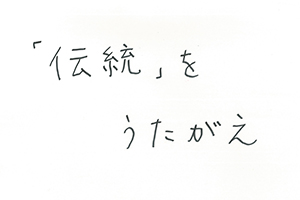 「伝統」を
うたがえ